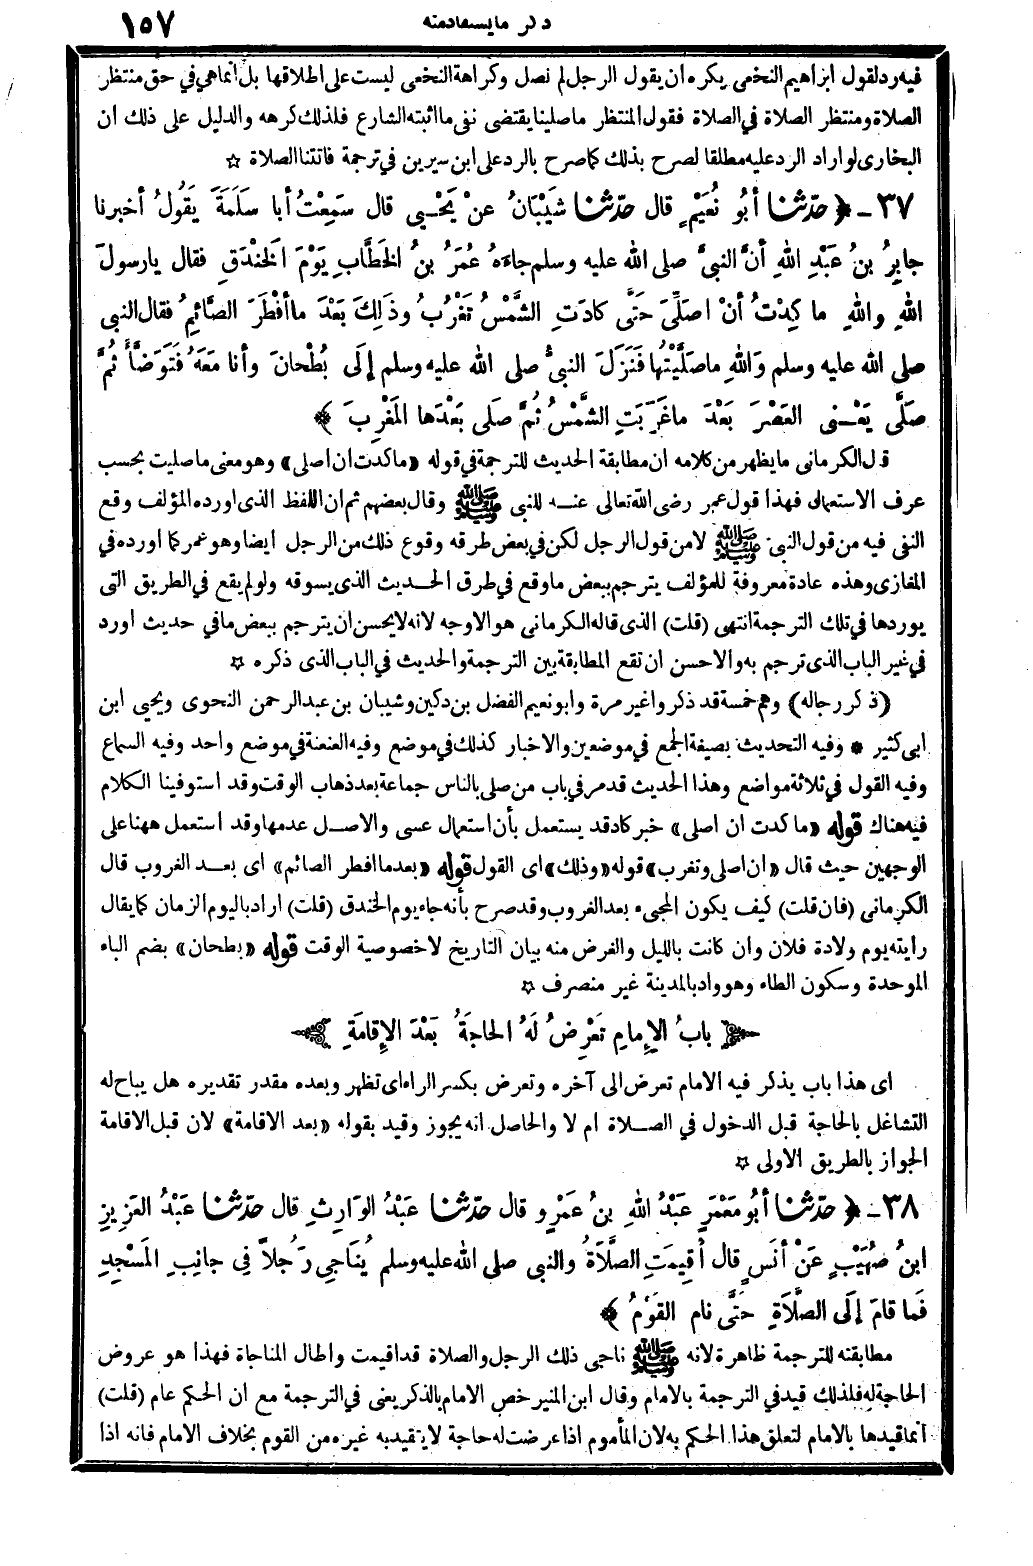 ذكر مايستفادمنه ١٥٧
فيه ردلقول ابراهيم النخعى يكره ان يقول الرجل لم نصل وكراهة النخعى ليست على اطلاقها بل انماهي في حق منتظر
الصلاة ومنتظر الصلاة في الصلاة فقول المنتظر ماصلينا يقتضى نفى ما اثبته الشارع فلذلك كرهه والدليل على ذلك ان
البخارى لواراد الرد عليه مطلقا لصرح بذلك كما صرح بالرد على ابن سيرين في ترجمة فاتتنا الصلاة ☆
٣٧ ـ ﴿ حدّثنا أبُو نُعَيْمٍ قال حدّثنا شَيْبَانُ عنْ يَحْيٰى قال سَمِعْتُ أبا سَلَمَةَ يَقُولُ أخبرنا
جابِرُ بنُ عَبْدِ اللهِ أنَّ النبىَّ صلى الله عليه وسلم جاءَهُ عُمَرُ بنُ الخَطَّابِ يَوْمَ الخَنْدَقِ فقال يارسولَ
اللهِ واللهِ ما كِدْتُ أنْ اصَلِّىَ حَتَّى كادَتِ الشَّمْسُ تَغْرُبُ وذَلِكَ بَعْدَ ما أفْطَرَ الصَّائِمُ فقال النبى
صلى الله عليه وسلم وَاللهِ ماصَلَّيْتُها فَنَزَلَ النبىُّ صلى الله عليه وسلم إلَى بُطْحانَ وأنا مَعَهُ فَتَوَضَّأَ ثُمَّ
صَلَّى يَعْنى العَصْرَ بَعْدَ ماغَرَبَتِ الشَّمْسُ ثُمَّ صَلى بَعْدَها المَغْرِبَ ﴾
قال الكرمانى مايظهر من كلامه ان مطابقة الحديث للترجمة في قوله «ما كدت ان اصلى» وهو معنى ماصليت بحسب
عرف الاستعمال فهذا قول عمر رضى الله تعالى عنه للنبى ﷺ وقال بعضهم ثم ان اللفظ الذى اورده المؤلف وقع
النفى فيه من قول النبى ﷺ لامن قول الرجل لكن في بعض طرقه وقوع ذلك من الرجل ايضا وهو عمر كما اورده في
المغازى وهذه عادة معروفة للمؤلف يترجم ببعض ماوقع في طرق الحديث الذى يسوقه ولو لم يقع في الطريق التى
يوردها في تلك الترجمة انتهى (قلت) الذى قاله الكرمانى هو الاوجه لانه لا يحسن ان يترجم ببعض مافي حديث اورد
في غير الباب الذى ترجم به والاحسن ان تقع المطابقة بين الترجمة والحديث في الباب الذى ذكره ☆
(ذكر رجاله) وهم خمسة قد ذكروا غير مرة وابو نعيم الفضل بن دكين وشيبان بن عبد الرحمن النحوى ويحيى ابن
ابى كثير * وفيه التحديث بصيغة الجمع في موضعين والاخبار كذلك في موضع وفيه العنعنة في موضع واحد وفيه السماع
وفيه القول في ثلاثة مواضع وهذا الحديث قد مر في باب من صلى بالناس جماعة بعد ذهاب الوقت وقد استوفينا الكلام
فيه هناك قوله «ما كدت ان اصلى» خبر كاد قد يستعمل بأن استعمال عسى والاصل عدمها وقد استعمل ههنا على
الوجهين حيث قال «ان اصلى وتغرب» قوله «وذلك» اى القول قوله «بعد ما افطر الصائم» اى بعد الغروب قال
الكرمانى (فان قلت) كيف يكون المجىء بعد الغروب وقد صرح بأنه جاء يوم الخندق (قلت) اراد باليوم الزمان كما يقال
رايته يوم ولادة فلان وان كانت بالليل والغرض منه بيان التاريخ لا خصوصية الوقت قوله «بطحان» بضم الباء
الموحدة وسكون الطاء وهو واد بالمدينة غير منصرف ☆
بابُ الإِمامِ تَعْرِضُ لَهُ الحاجَةُ بَعْدَ الإِقامَةِ
اى هذا باب يذكر فيه الامام تعرض الى آخره وتعرض بكسر الراء اى تظهر وبعده مقدر تقديره هل يباح له
التشاغل بالحاجة قبل الدخول في الصلاة ام لا والحاصل انه يجوز وقيد بقوله «بعد الاقامة» لان قبل الاقامة
الجواز بالطريق الاولى ☆
٣٨ ـ ﴿ حدّثنا أبُو مَعْمَرٍ عَبْدُ اللهِ بنُ عَمْرٍو قال حدّثنا عبْدُ الوَارِثِ قال حدّثنا عبْدُ العَزِيزِ
ابنُ صُهَيْبٍ عَنْ أنَسٍ قال أُقيمَتِ الصَّلَاةُ والنبى صلى الله عليه وسلم يُناجِى رَجُلاً فِى جانِبِ المَسْجِدِ
فَما قامَ إلَى الصَّلَاةِ حَتَّى نام القَوْمُ ﴾
مطابقته للترجمة ظاهرة لانه ﷺ ناجى ذلك الرجل والصلاة قد اقيمت واطال المناجاة فهذا هو عروض
الحاجة له فلذلك قيد في الترجمة بالامام وقال ابن المنير خص الامام بالذكر يعنى في الترجمة مع ان الحكم عام (قلت)
انما قيدها بالامام لتعلق هذا الحكم به لان المأموم اذا عرضت له حاجة لا يتقيد به غيره من القوم بخلاف الامام فانه اذا